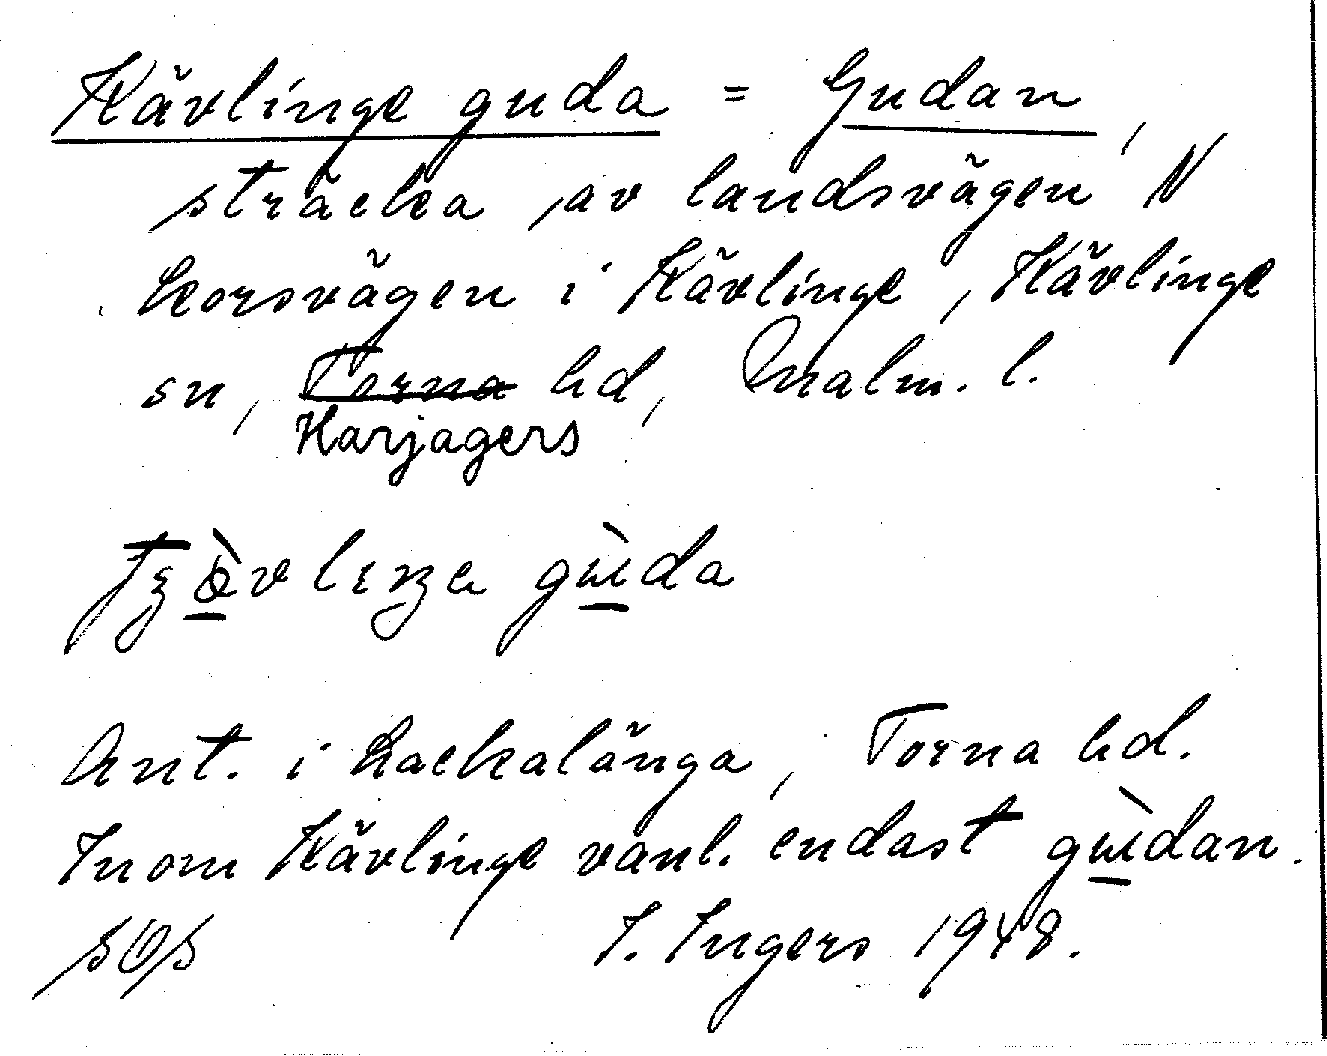 Kävlinge guda = Gudan,
sträcka av landsvägen N
korsvägen i Kävlinge, Kävlinge
sn, Torna hd, Malm. l.
Harjagers
guda
Ant. i Lackalänga, Torna hd.
Inom Kävlinge vanl. endast gùdan.
I. Ingers 1948.